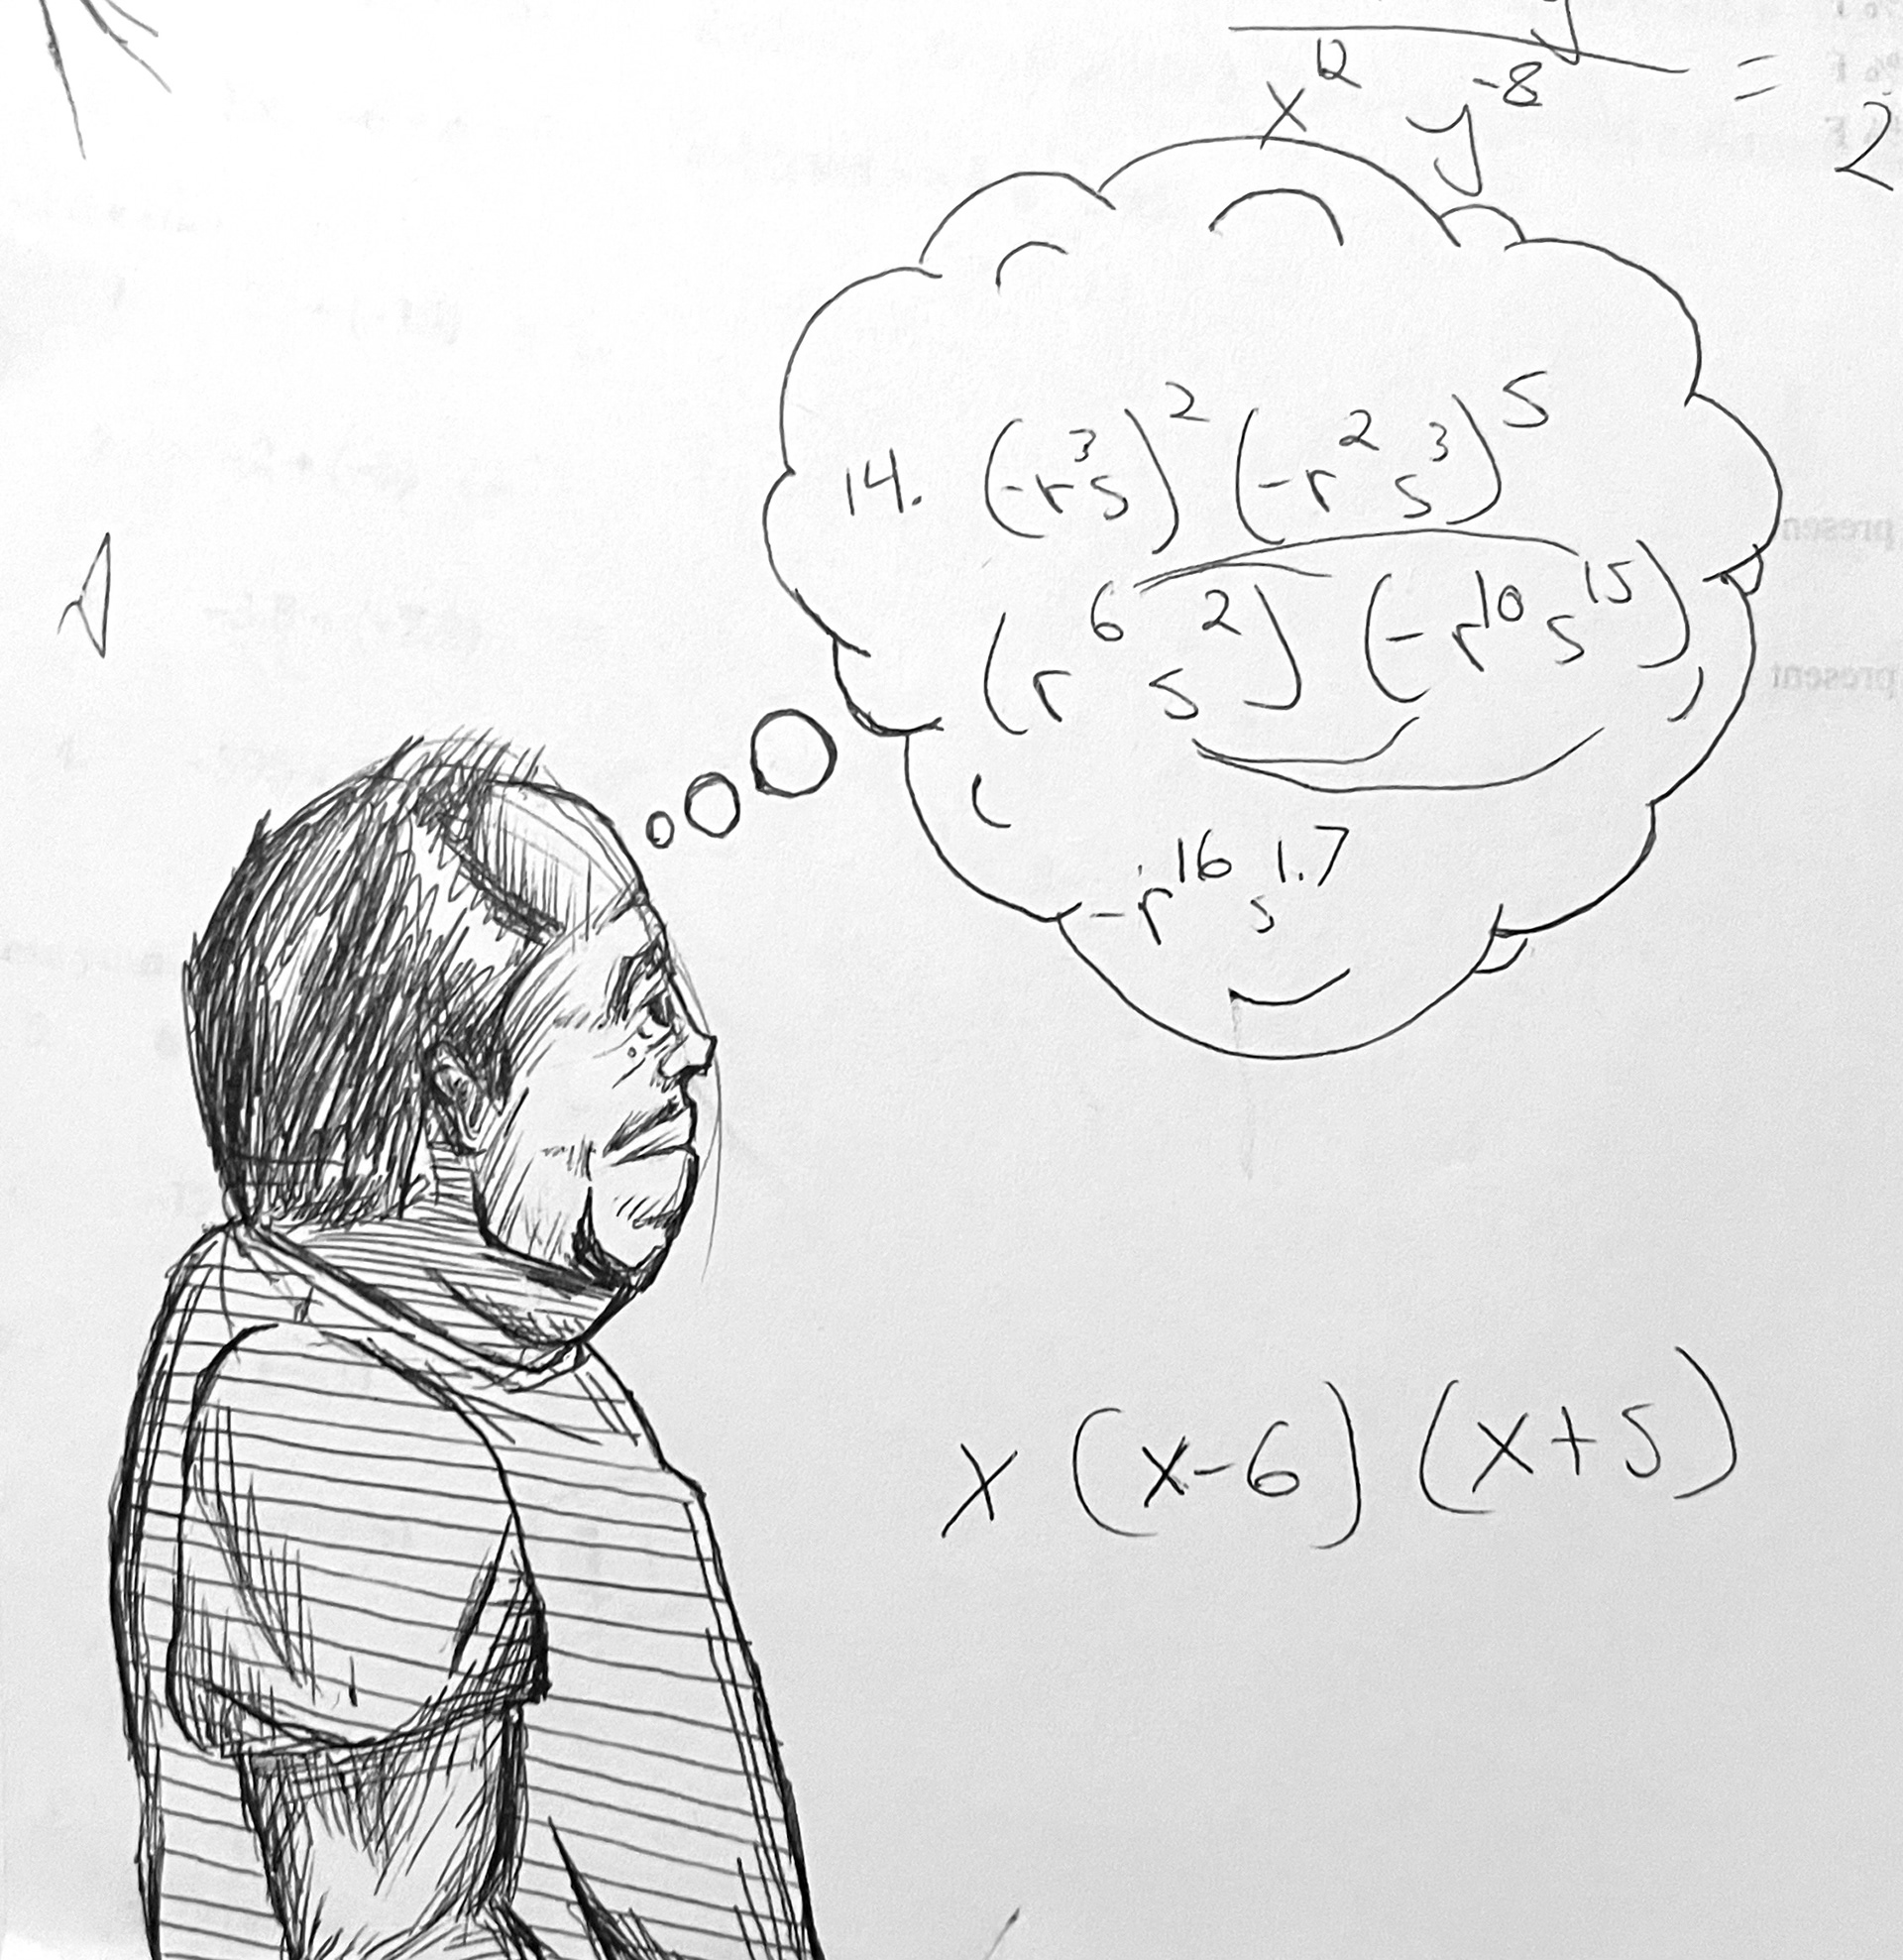 x¹² y⁻⁸ = 2
14. (-r³s)² (-r² s³)⁵
(r⁶ s²) (-r¹⁰ s¹⁵)
-r¹⁶ s¹·⁷
x (x-6) (x+5)